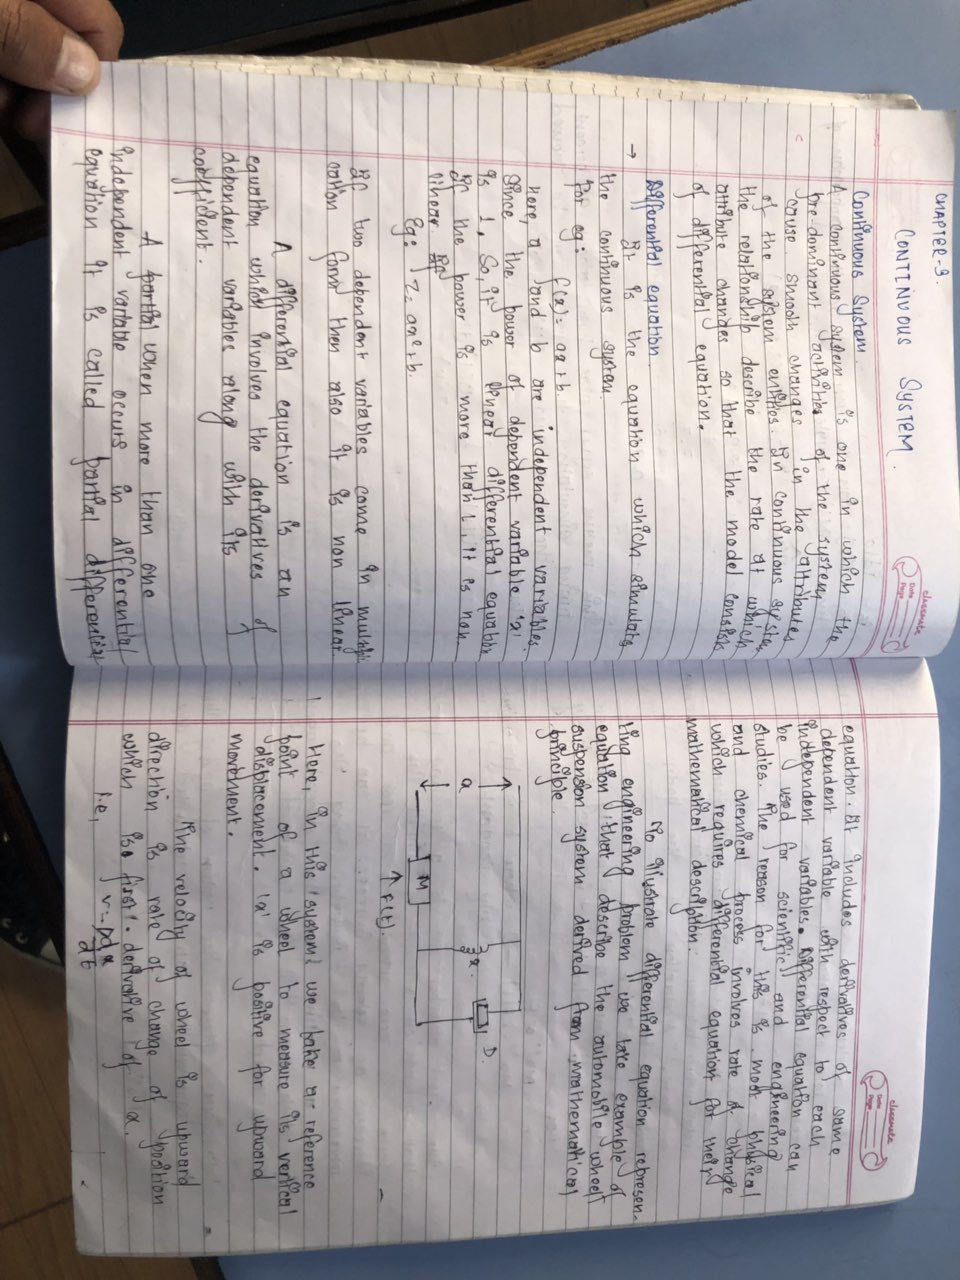 CHAPTER-3.
CONTINUOUS SYSTEM.
classmate
Date
Page
Continuous System.
A continuous system is one in which the
pre-dominant activities of the system
cause smooth changes in the attributes
of the system entities. In continuous system
the relationship describe the rate at which
attribute changes so that the model consists
of differential equation.
→ Differential equation.
It is the equation which simulate
the continuous system.
For eg: f(x) = ax+b.
Here, a and b are independent variables.
Since, the power of dependent variable 'x'
is 1, So, it is linear differential equation
If the power is more than 1, it is non
linear.
Eg: Z = ax²+b.
If two dependent variables come in multipli
cation form then also it is non linear.
A differential equation is an
equation which involves the derivatives of
dependent variables along with its
coefficient.
A partial when more than one
independent variable occurs in differential
equation it is called partial differential
classmate
Date
Page
equation. It includes derivatives of same
dependent variable with respect to each
independent variables. Differential equation can
be used for scientific and engineering
studies. The reason for this is most physical
and chemical process involves rate of change
which requires differential equation for their
mathematical description.
To illustrate differential equation represen-
ting engineering problem we take example of
equation that describe the automobile wheel
suspension system derived from mathematical
principle.
D.
x
M
↑ F(t).
Here, in this system, we take a reference
point of a wheel to measure its vertical
displacement. 'x' is positive for upward
movement.
The velocity of wheel is upward
direction is rate of change of position
which is first derivative of x.
i.e, v = dx
dt